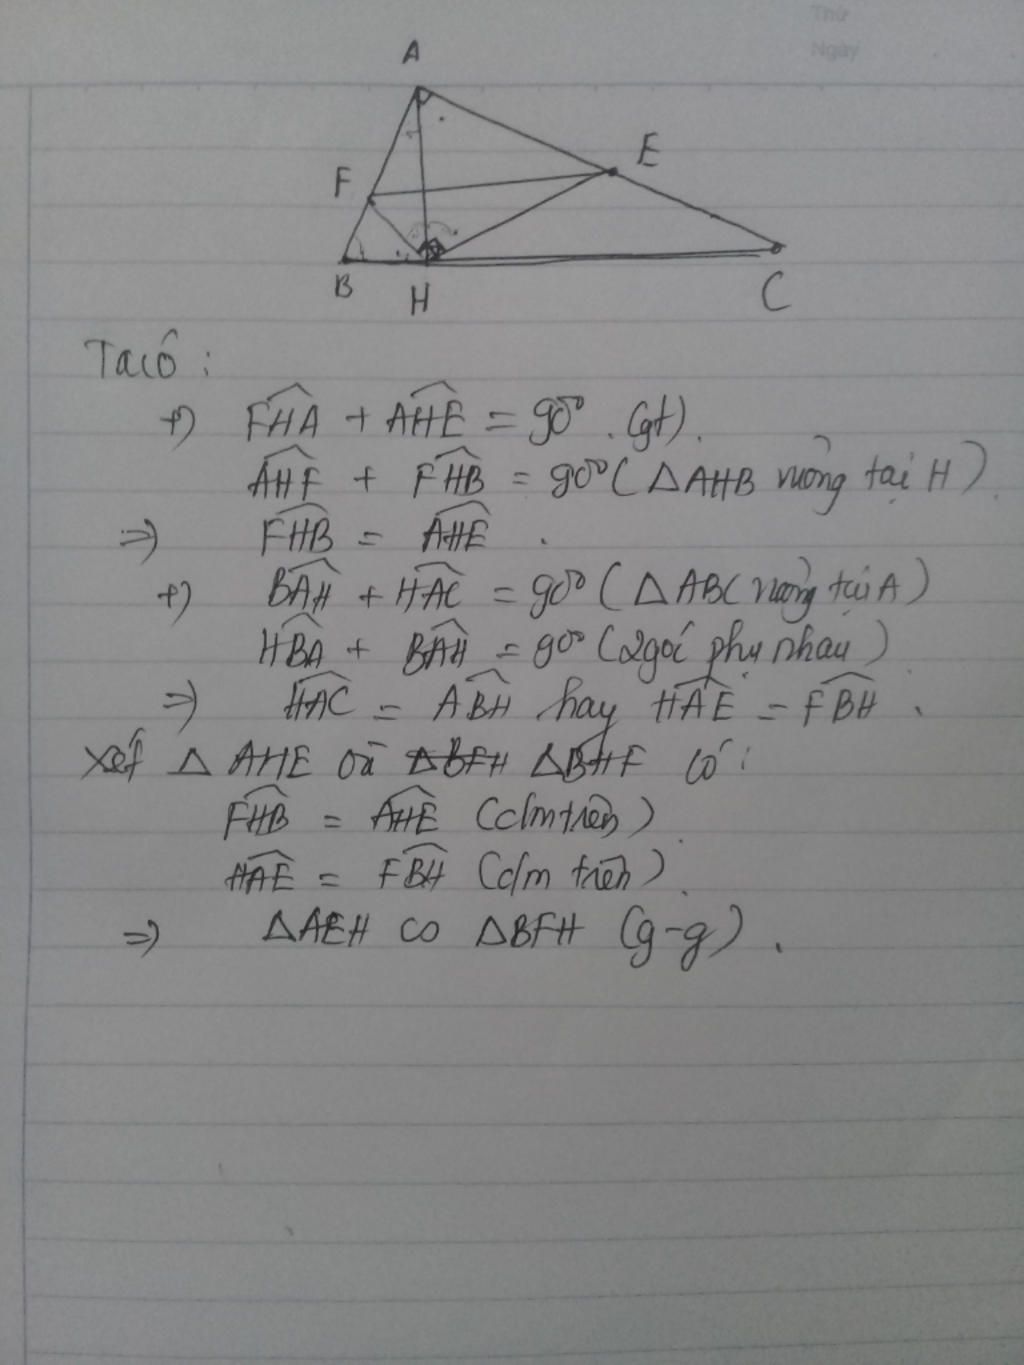 Thứ
Ngày
A
E
F
B
H
C
Ta có :
+) FHA + AHE = 90° . (gt).
AHF + FHB = 90° ( △AHB vuông tại H )
=> FHB = AHE .
+) BAH + HAC = 90° ( △ABC vuông tại A )
HBA + BAH = 90° (2 góc phụ nhau )
=> HAC = ABH hay HAE = FBH .
Xét △ AHE và △BFH △BHF có :
FHB = AHE (c/m trên)
HAE = FBH (c/m trên) .
=> △AEH ∽ △BFH (g-g) .